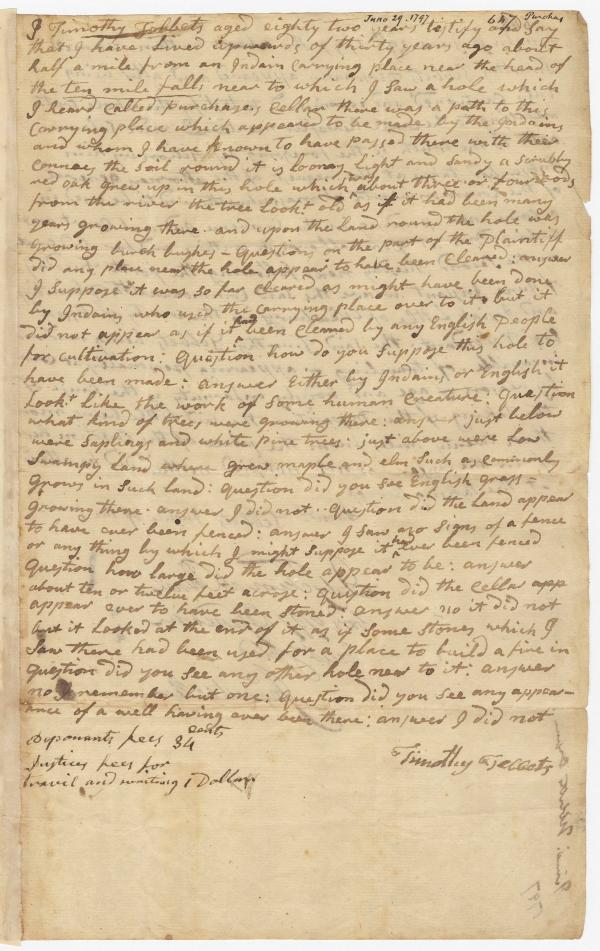 June 29. 1797 647 Purchas
I, Timothy Tebbets aged eighty two years testify and say
that I have Lived upwards of thirty years ago about
half a mile from an Indain Carrying place near the head of
the ten mile falls near to which I Saw a hole which
I heard Called purchases Cellar there was a path to this
Carrying place which appeared to be made by the Indains
and whom I have known to have passed there with their
connoes the Soil round it is loomy Light and Sandy a Scrubby
red oak grew up in this hole which was about three or four Rods
from the river the tree Lookt old as if it had been many
years growing there and upon the Land round the hole was
growing burch bushes – Questions on the part of the Plaintiff
did any place near the hole appear to have been Cleared: answer
I Suppose it was So far Cleared as might have been done
by Indains who used the Carrying place over to it but it
did not appear as if it had been Cleared by any English People
for cultivation: Question how do you Suppose this hole to
have been made: answer Either by Indains or English it
Lookt Like the work of Some human Creature: Question
what kind of trees were growing there: answer just below
were Saplings and white pine trees: just above were Low
Swampy Land where grew maple and elm Such as Commonly
Grows in Such land: Question did you See English grass –
growing there. answer I did not.. Question did the Land appear
to have ever been fenced: answer I Saw no Signs of a fence
or any thing by which I might Suppose it had ever been fenced
Question how large did the hole appear to be: answer
about ten or twelve feet across: Question did the Cellar app
appear ever to have been Stoned: answer no it did not
but it Looked at the end of it as if Some Stones which I
Saw there had been used for a place to build a fire in
Question did you See any other hole near to it: answer
no I remember but one: Question did you See any appear=
ance of a well having ever been there: answer I did not
Deponants fees 34 cents
Timothy Tebbets
Justices fees for
travil and writing 1 Dollar